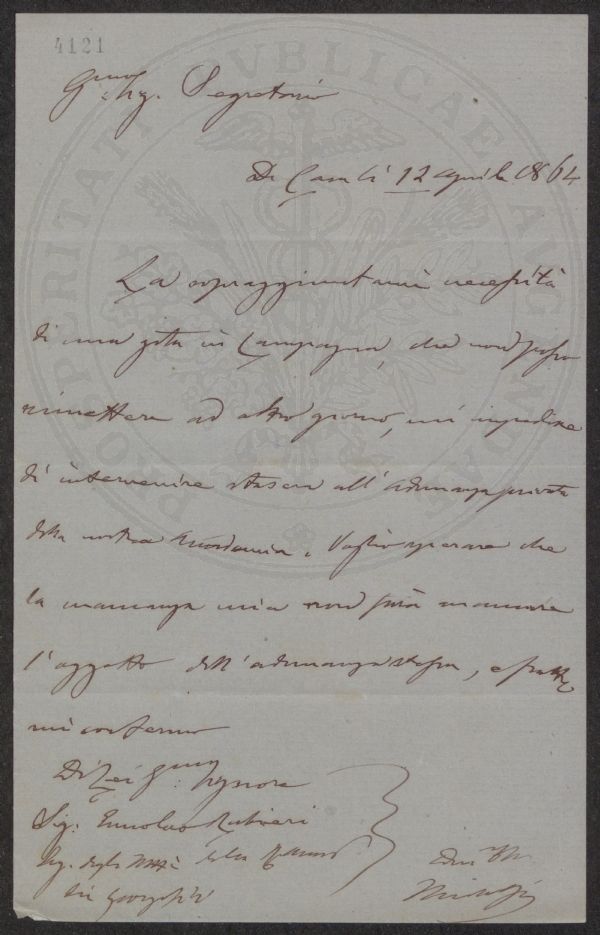 4121
Sig. Segretario
Di Casa li 12 aprile 1864
La sopraggiuntami necessità
di una gita in Campagna, che non posso
rimettere ad altro giorno, mi impedisce
di intervenire stasera all'adunanza privata
della nostra Accademia. Voglio sperare che
la mancanza mia non farà mancare
l'oggetto dell'adunanza stessa, e
mi confermo
Di Lei
Sig. Ermolao Rubieri
Seg. degli Atti
dei Georgofili
PROSPERITATI PUBLICAE AUGENDAE